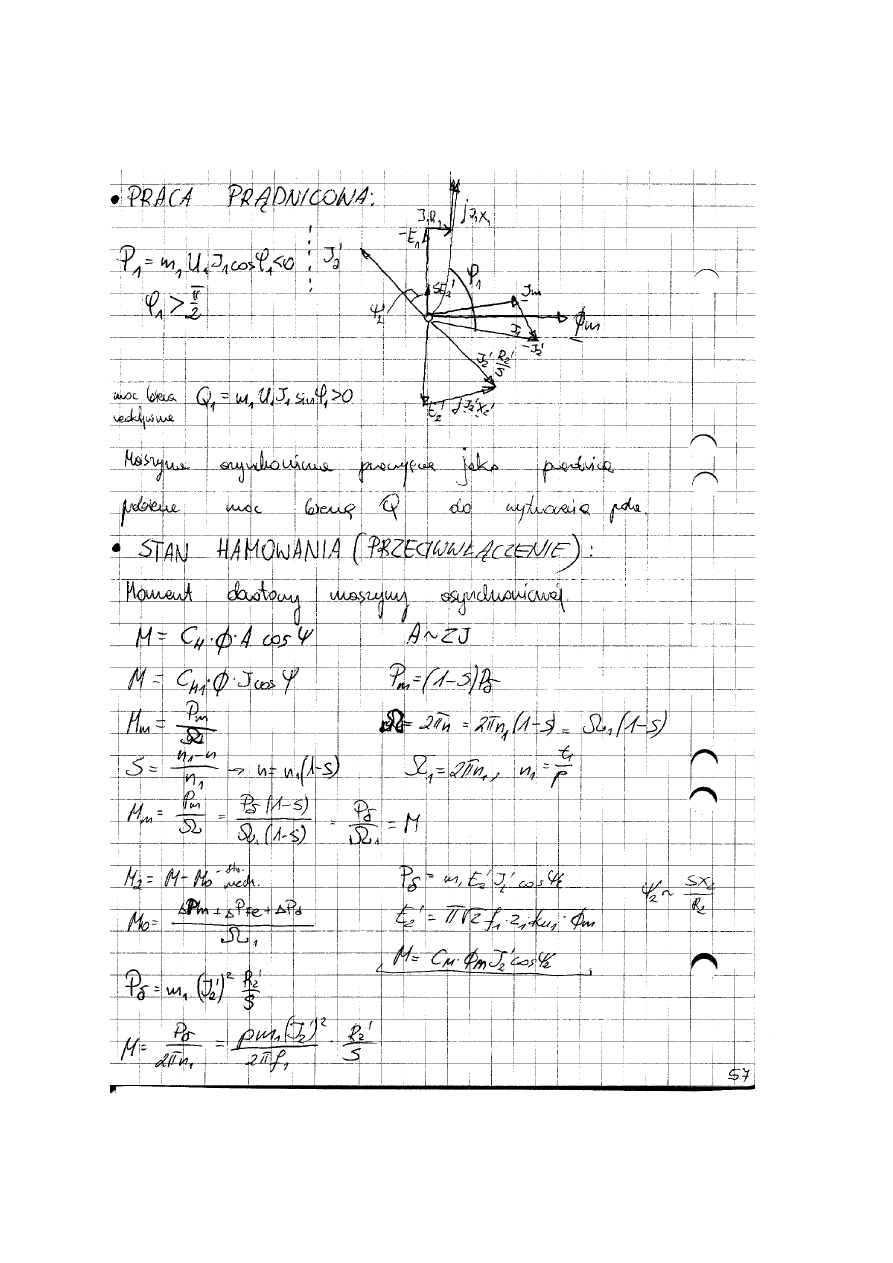 • PRACA PRĄDNICOWA:
P₁ = m₁ U₁ J₁ cosφ₁ < 0
φ₁ > π/2
J₂'
ψ₂
J₁R₁
jJ₁X₁
-E₁
sE₂'
φ₁
Jm
ϕm
J₁
-J₂'
J₂' R₂'/s
E₂'
jJ₂'X₂'
moc bierna Q₁ = m₁ U₁ J₁ sinφ₁ > 0
Maszyna asynchroniczna pracująca jako prądnica
pobiera moc bierną Q do wytworzenia pola.
• STAN HAMOWANIA (PRZECIWWŁĄCZENIE):
Moment maszyny asynchronicznej
M = C_M · ϕ · A cosψ A ~ ZJ
M = C_M1 · ϕ · J cosψ Pm = (1-s)Pδ
Mm = Pm/Ω Ω = 2πn = 2πn₁(1-s) = Ω₁(1-s)
S = (n₁-n)/n₁ → n = n₁(1-s) Ω₁ = 2πn₁, n₁ = f₁/p
Mm = Pm/Ω = Pδ(1-s)/Ω₁(1-s) = Pδ/Ω₁ = M
M₂ = M - M₀ - mech. Pδ = m₁ E₂' J₂' cosψ₂ ψ₂' ~ sX₂/R₂
M₀ = (ΔPm + ΔPFe + ΔPd)/Ω₁ E₂' = π√2 f₁ · z₁ · ku₁ · ϕm
M = C_M · ϕm J₂' cosψ₂
Pδ = m₁ (J₂')² R₂'/s
M = Pδ/2πn₁ = pm₁(J₂')²/2πf₁ · R₂'/s
57